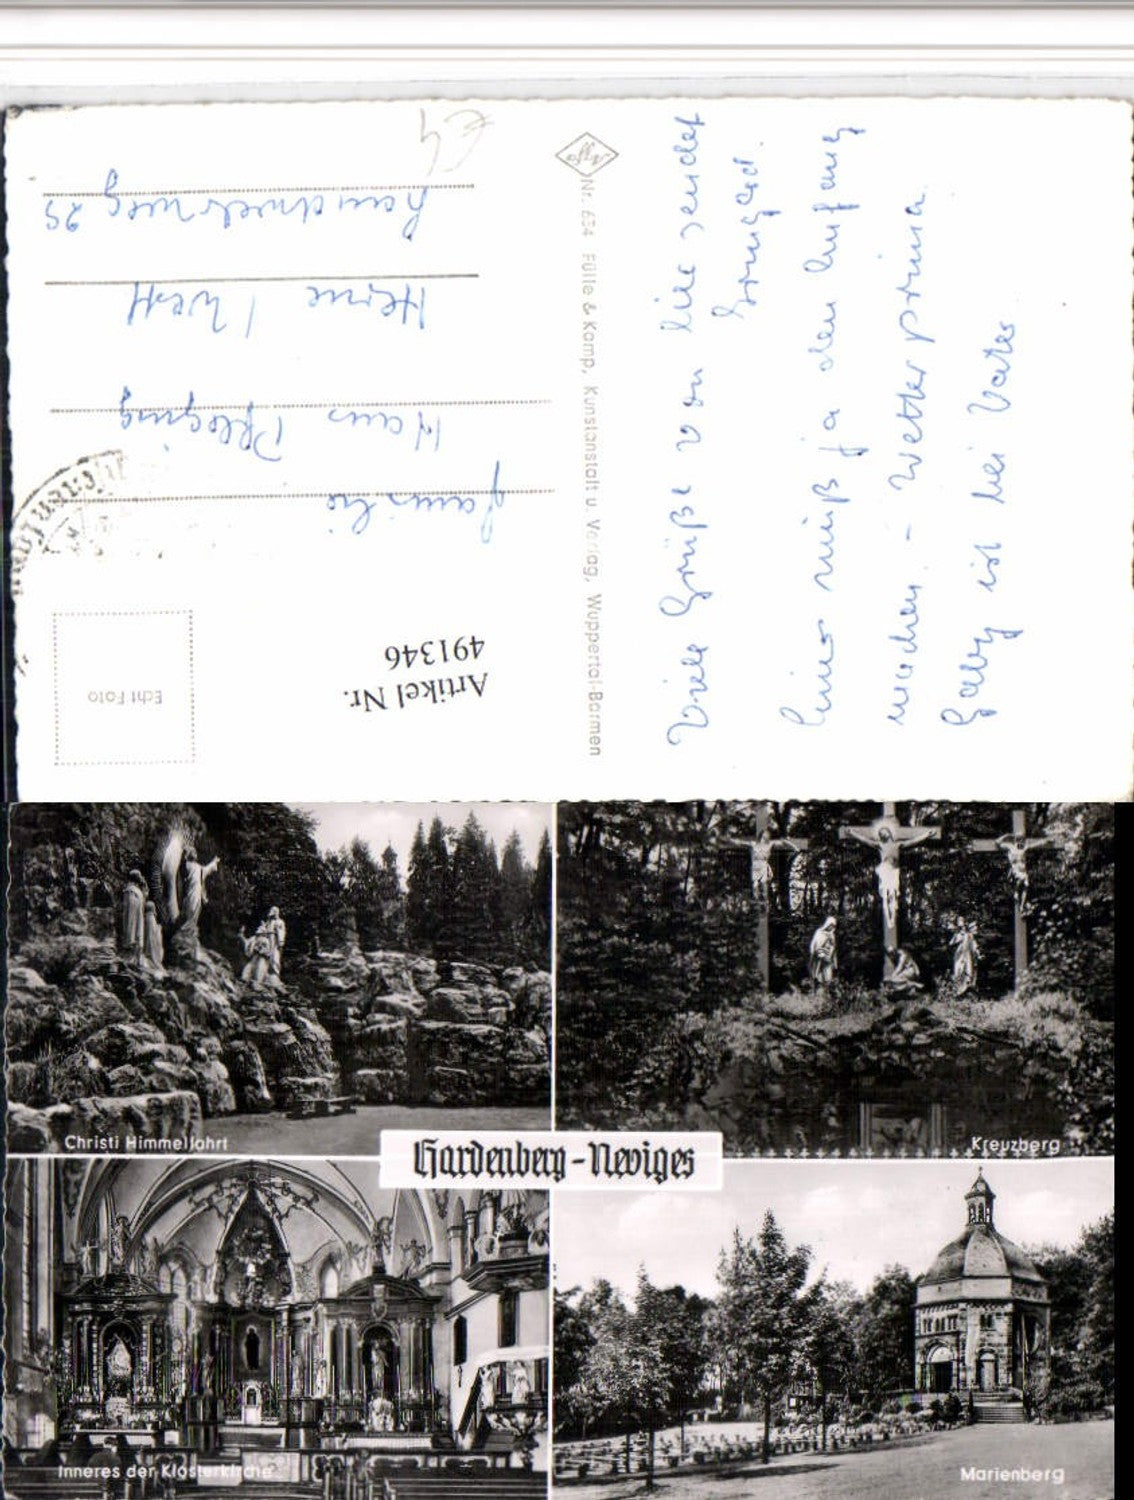 Familie
Hans Pleging
Herne / West
Landwehrweg 25
Echt Foto
Artikel Nr.
491346
Nr. 634 Fülle & Komp, Kunstanstalt u. Verlag, Wuppertal-Barmen
Viele Grüße von hier sendet
Irmgard.
Einer muß ja den Anfang
machen. - Wetter prima.
Gaby ist bei Vater
Christi Himmelfahrt
Kreuzberg
Hardenberg-Neviges
Inneres der Klosterkirche
Marienberg